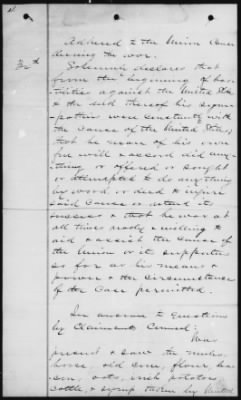 Adhered to the Union Cause
during the war.
32nd Solemnly declares that
from the beginning of hos-
tilities against the United States
to the end thereof his sym-
pathies were constantly with
the cause of the United States;
that he never of his own
free will & accord did any-
thing or offered or sought
or attempted to do anything
by word or deed to injure
said Cause or retard its
success & that he was at
all times ready & willing to
aid & assist the cause of
the Union or its supporters
so far as his means &
power & the circumstances
of the Case permitted.
In answer to Questions
by Claimants Counsel:
Was
present & saw the mules,
horse, old corn, flour, ba-
con, oats, irish potatoes,
cattle, & syrup taken by United